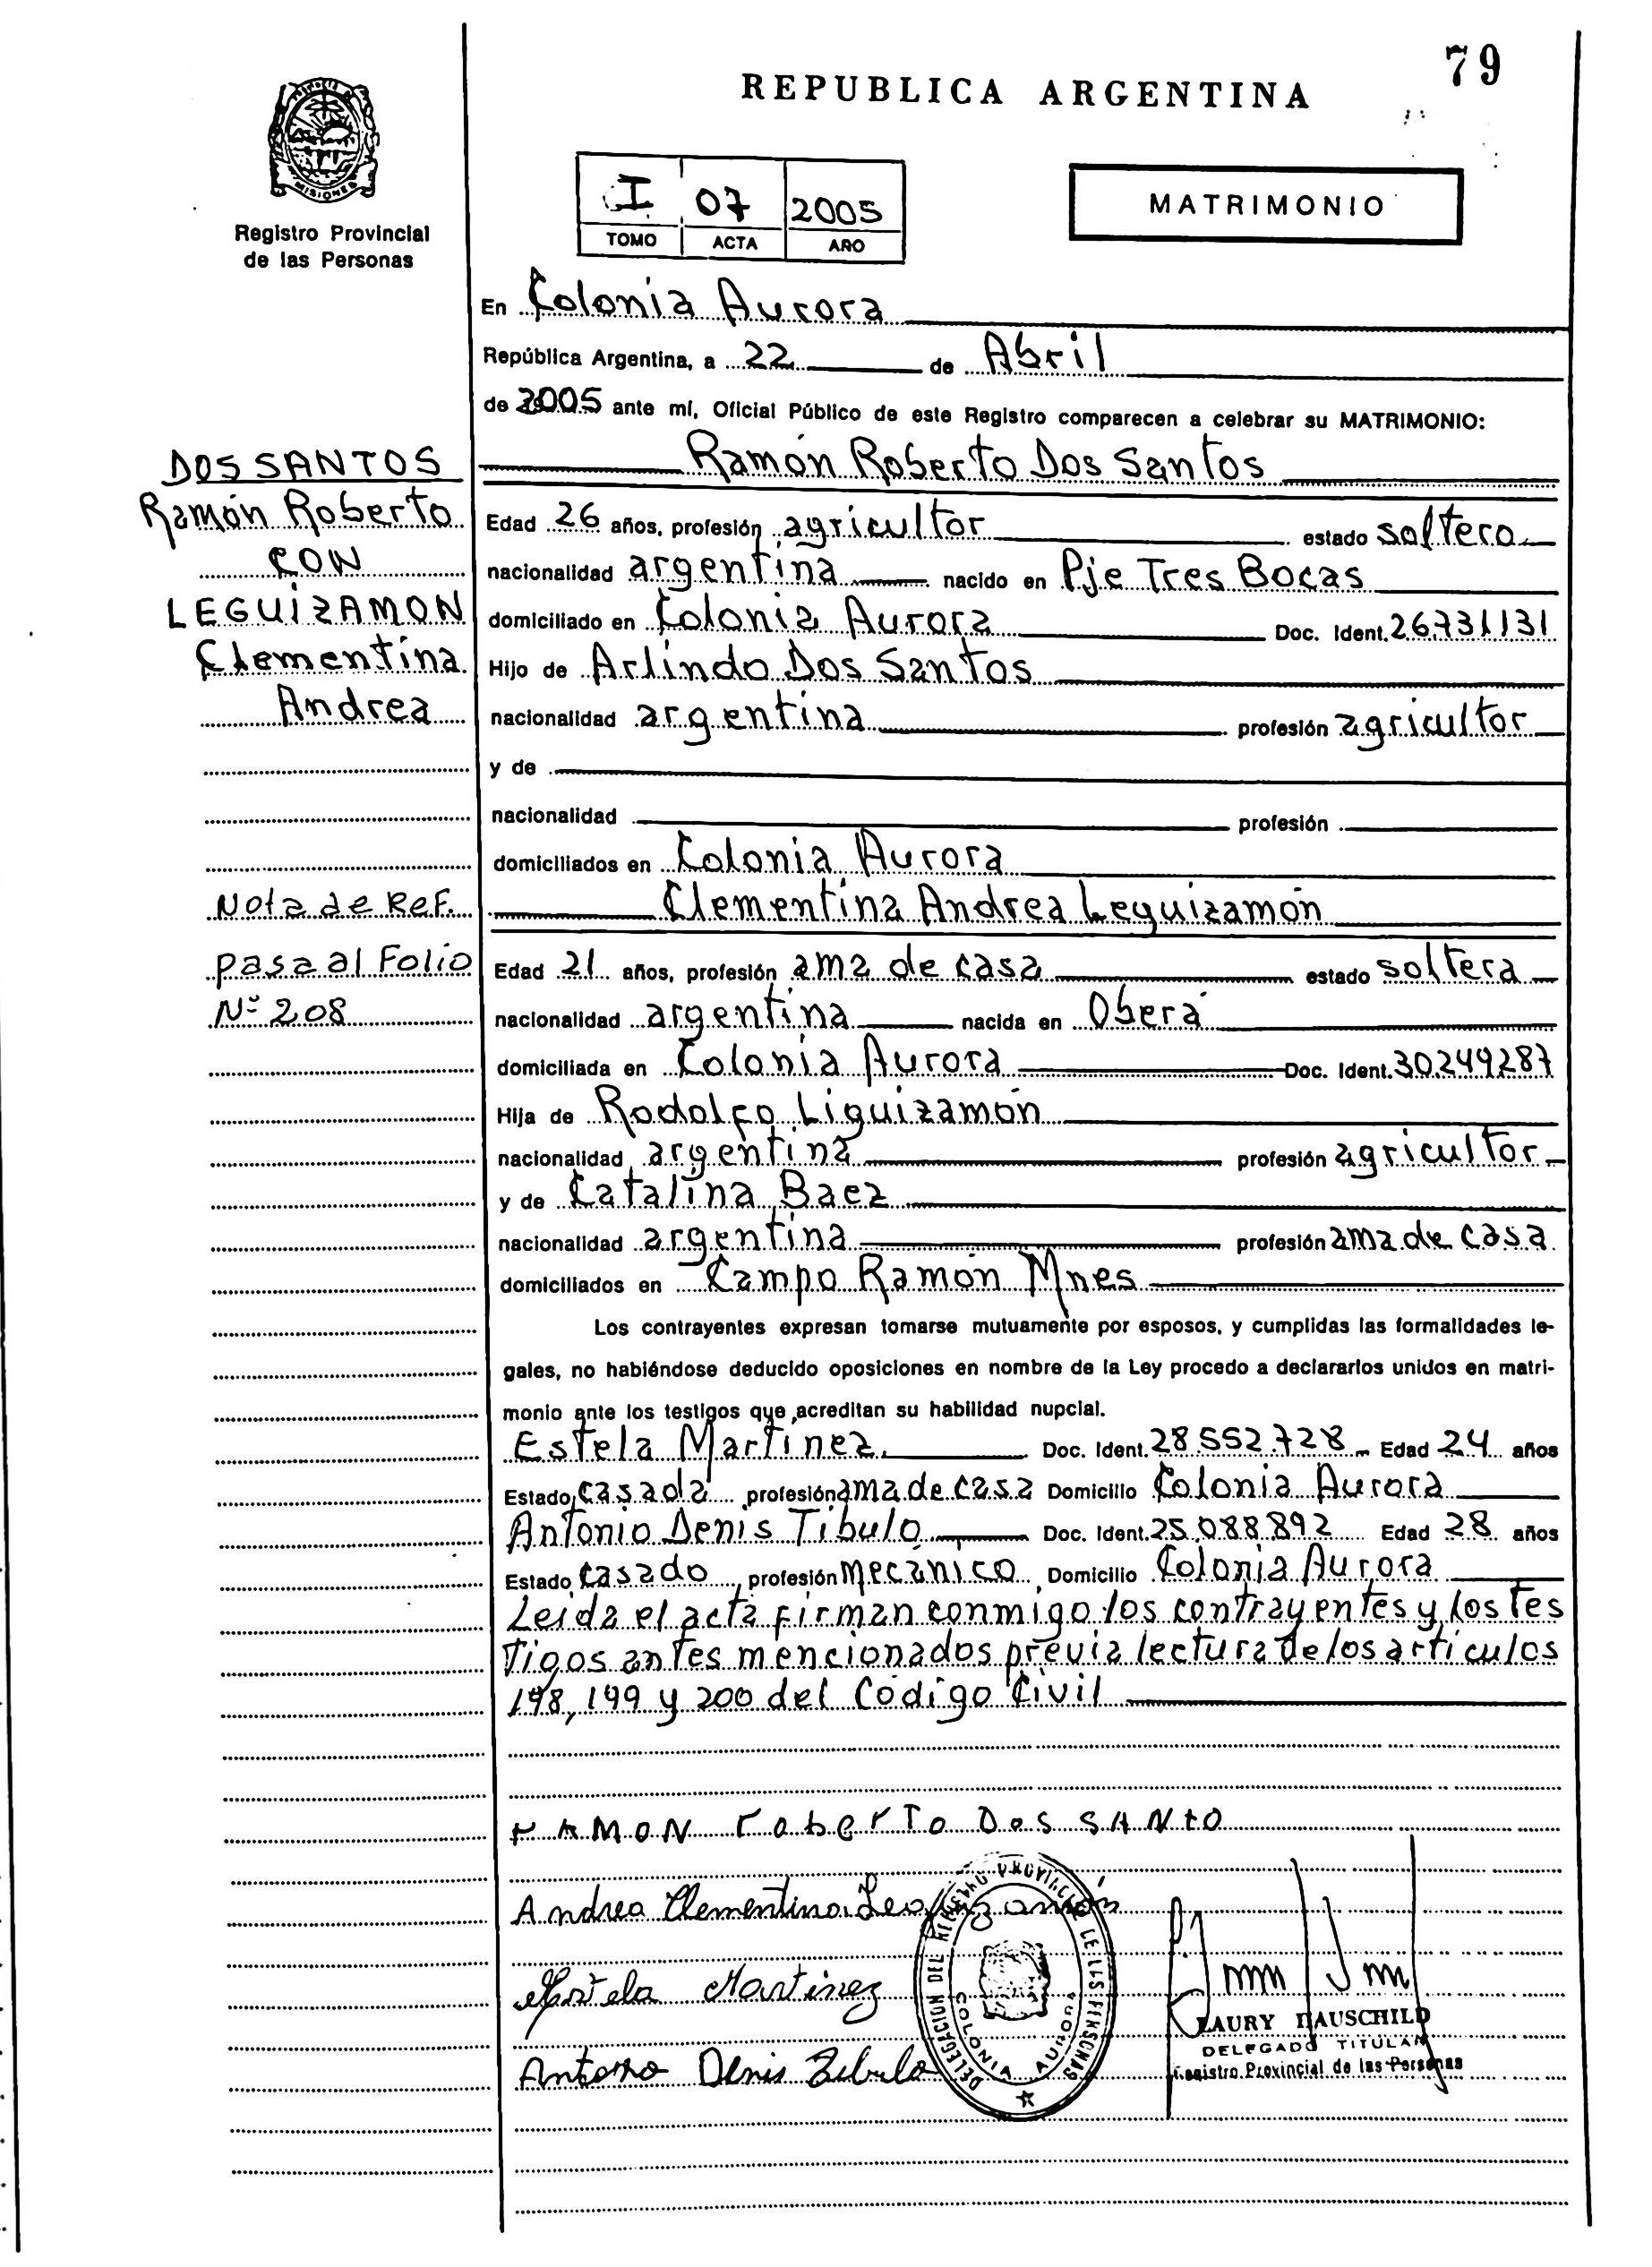 79
REPUBLICA ARGENTINA
MISIONES
Registro Provincial
de las Personas
I 07 2005
TOMO ACTA AÑO
MATRIMONIO
En Colonia Aurora
República Argentina, a 22 de Abril
de 2005 ante mí, Oficial Público de este Registro comparecen a celebrar su MATRIMONIO:
DOS SANTOS
Ramón Roberto
CON
LEGUIZAMON
Clementina
Andrea
Nota de Ref.
pasa al Folio
Nº 208
Ramón Roberto Dos Santos
Edad 26 años, profesión agricultor estado soltero
nacionalidad argentina nacido en Pje Tres Bocas
domiciliado en Colonia Aurora Doc. Ident. 26731131
Hijo de Arlindo Dos Santos
nacionalidad argentina profesión agricultor
y de
nacionalidad profesión
domiciliados en Colonia Aurora
Clementina Andrea Leguizamón
Edad 21 años, profesión ama de casa estado soltera
nacionalidad argentina nacida en Oberá
domiciliada en Colonia Aurora Doc. Ident. 30.249.287
Hija de Rodolfo Liguizamón
nacionalidad argentina profesión agricultor
y de Catalina Baez
nacionalidad argentina profesión ama de casa
domiciliados en Campo Ramón Mnes
Los contrayentes expresan tomarse mutuamente por esposos, y cumplidas las formalidades le-
gales, no habiéndose deducido oposiciones en nombre de la Ley procedo a declararlos unidos en matri-
monio ante los testigos que acreditan su habilidad nupcial.
Estela Martinez Doc. Ident. 28.552.728 Edad 24 años
Estado casada profesión ama de casa Domicilio Colonia Aurora
Antonio Denis Tibulo Doc. Ident. 25.088.892 Edad 28 años
Estado casado profesión mecánico Domicilio Colonia Aurora
Leida el acta firman conmigo los contrayentes y los tes
tigos antes mencionados previa lectura de los artículos
198, 199 y 200 del Código Civil
rAMON roberTo Dos SANtO
Andrea Clementina Leguizamón
Estela Martinez
Antonio Denis Tibulo
DELEGACION DEL REGISTRO PROVINCIAL DE LAS PERSONAS
COLONIA AURORA
DELEGADO TITULAR
Registro Provincial de las Personas